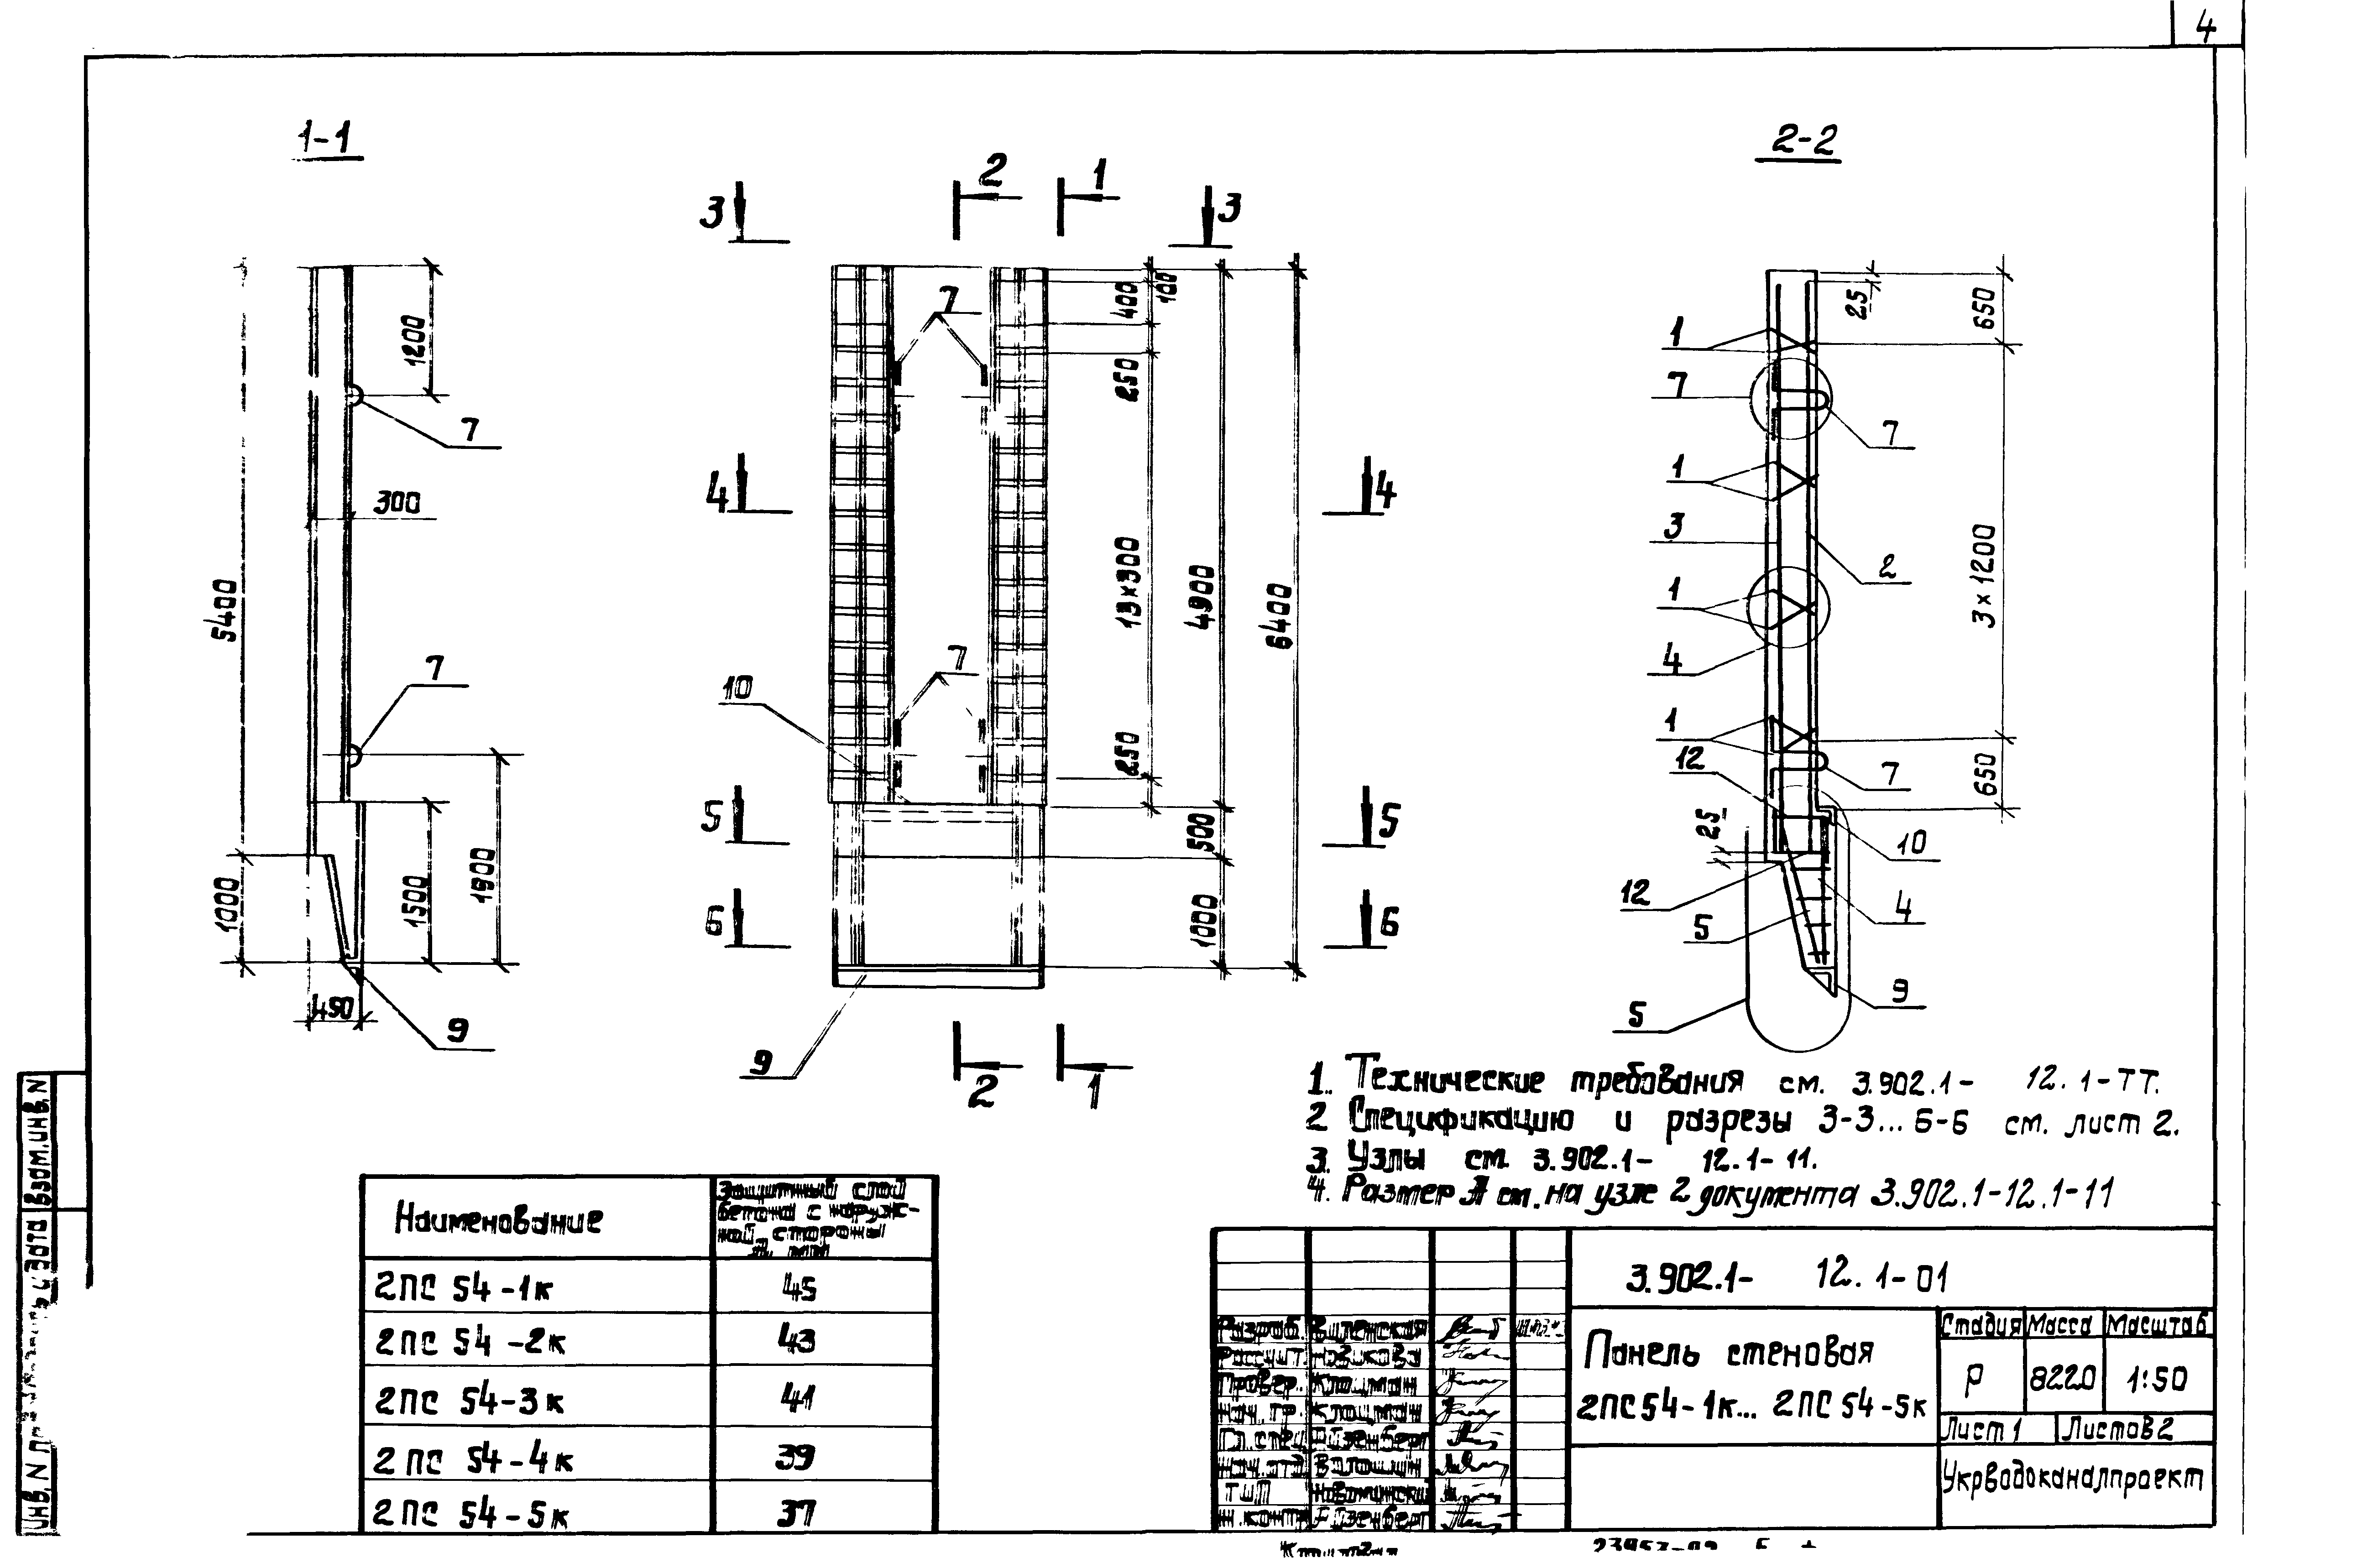 4
1-1
2-2
3
2
1
3
1200
7
300
5400
7
1000
1500
1900
450
9
7
400
100
250
4
4
13×300
4900
6400
7
10
250
5
5
500
6
6
1000
9
2
1
25
650
1
7
7
1
3
2
3×1200
1
4
1
12
7
650
25
10
12
4
5
9
5
1. Технические требования см. 3.902.1- 12.1-ТТ.
2 Спецификацию и разрезы 3-3... 6-6 см. лист 2.
3. Узлы см. 3.902.1- 12.1-11.
4. Размер А см. на узле 2 документа 3.902.1-12.1-11
Наименование
Защитный слой
бетона с наруж-
ной стороны
А, мм
2ПС 54-1к 45
2ПС 54-2к 43
2ПС 54-3к 41
2ПС 54-4к 39
2ПС 54-5к 37
3.902.1- 12.1-01
Панель стеновая
2ПС54-1к... 2ПС 54-5к
Стадия Масса Масштаб
Р 8220 1:50
Лист 1 Листов 2
Укрводоканалпроект
Разраб. Виленская
Рассчит. Новикова
Провер. Клоцман
Нач. гр. Клоцман
Гл. спец.
Нач. отд. Волошин
Н. контр.
Взам. инв. N
дата
Инв. N